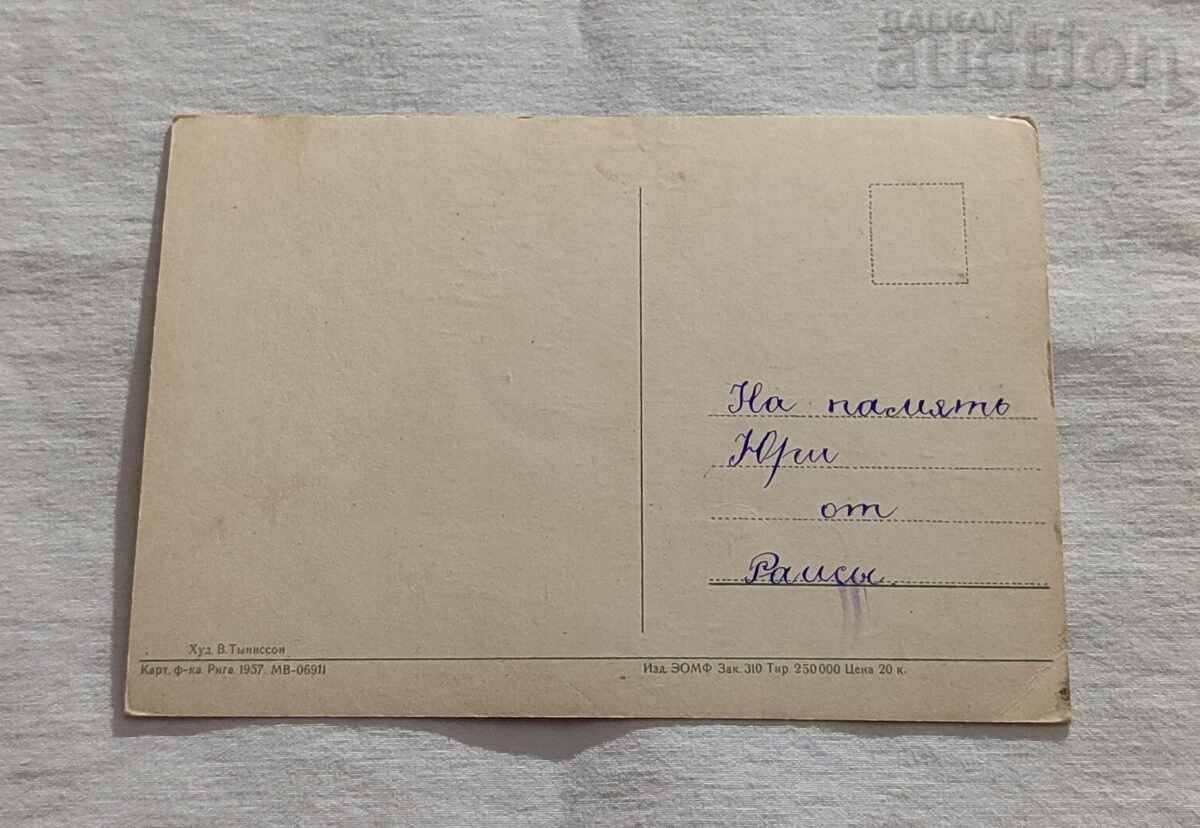 БАЛКАН
auction
На память
Юри
от
Раисы
Худ. В. Тыниссон
Карт. ф-ка. Рига. 1957. МВ-06911
Изд. ЭОМФ Зак. 310 Тир. 250 000 Цена 20 к.